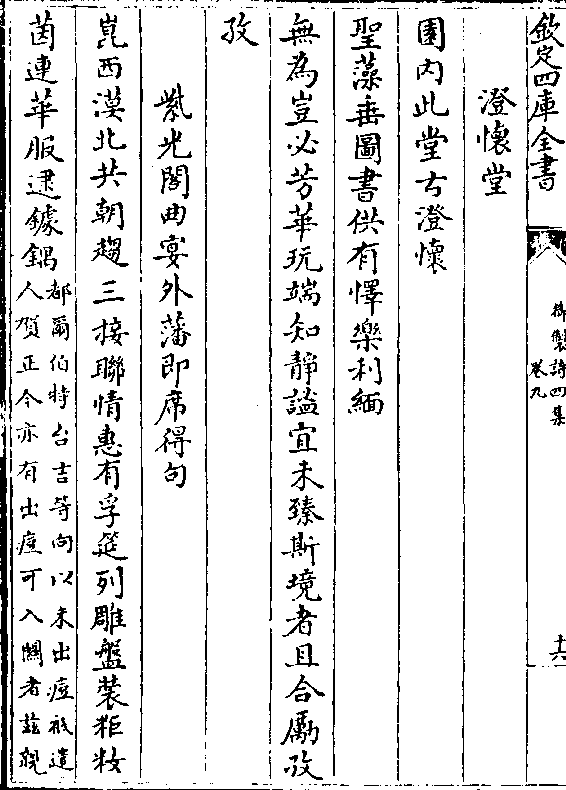 欽定四庫全書
御製詩四集
卷九
十六
澄懷堂
園内此堂古澄懷
聖藻垂圖書供有懌樂利緬
無為豈必芳華玩端知靜謐宜未臻斯境者且合勵孜
孜
紫光閣曲宴外藩即席得句
崑西漠北共朝趨三接聯情惠有孚筵列雕盤裝粔籹
茵連華服逮鐻鍝
都爾伯特台吉等向以未出痘祗遣
人賀正今亦有出痘可入關者兹覲